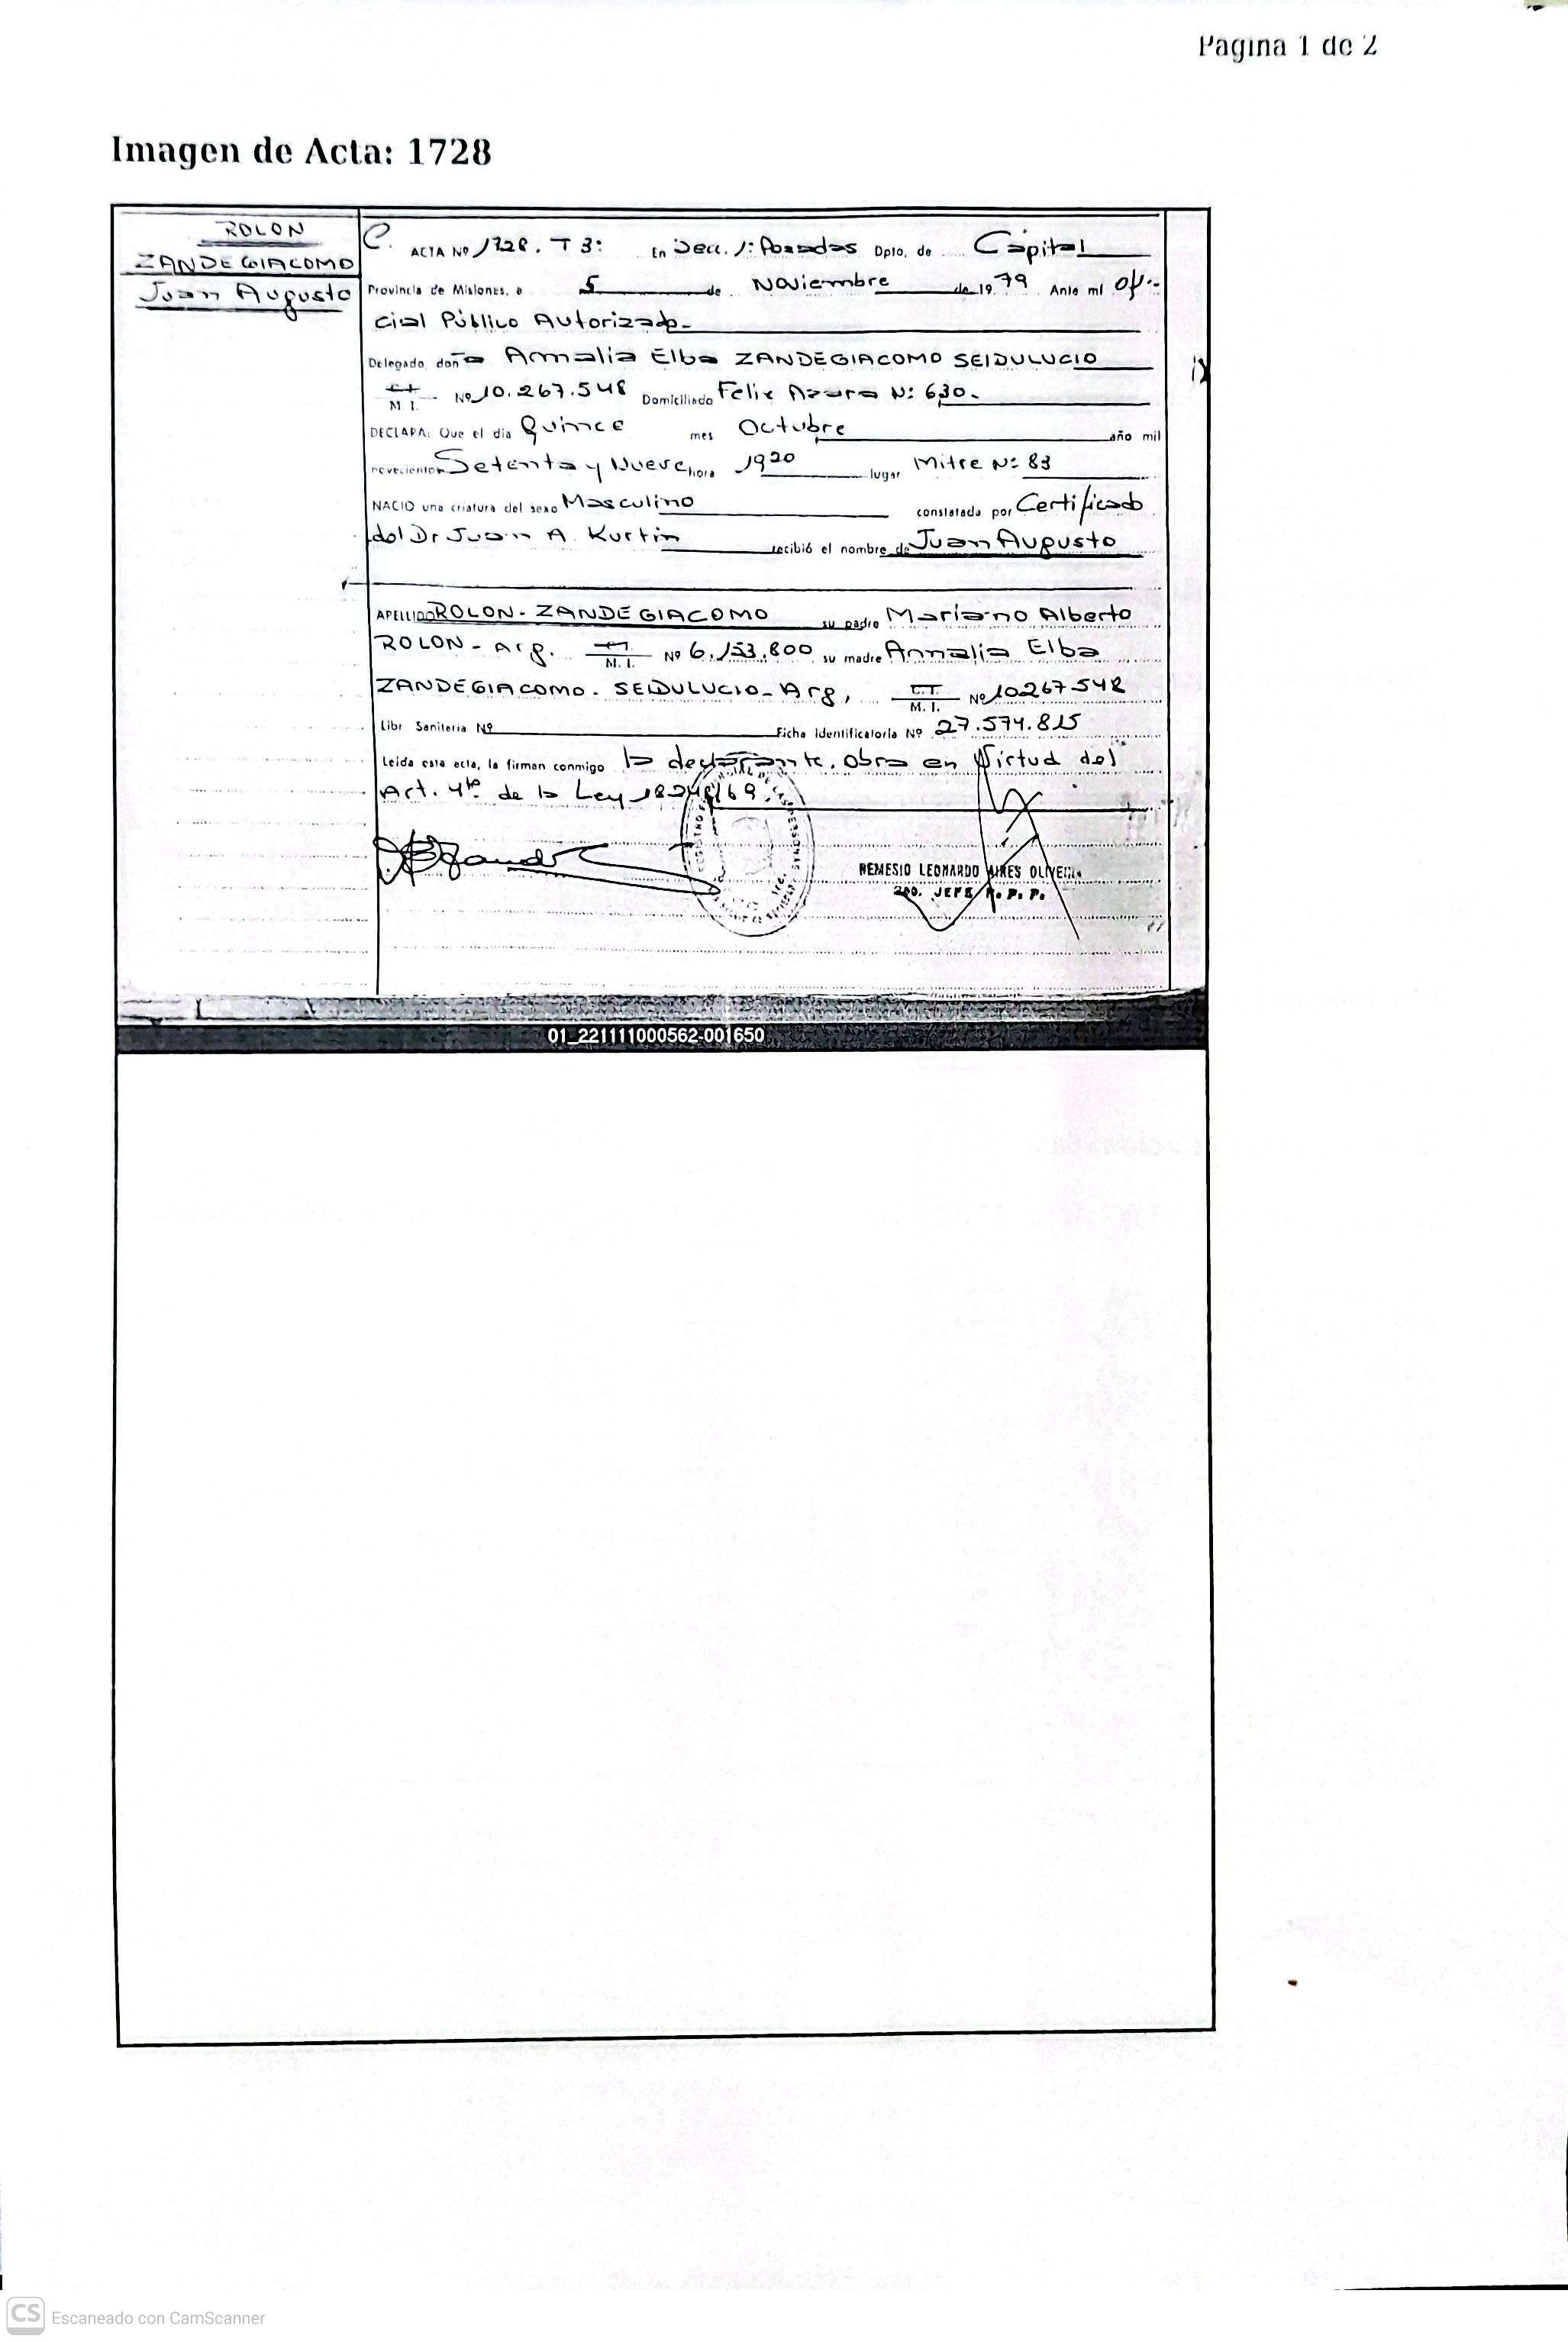 Pagina 1 de 2
Imagen de Acta: 1728
ROLON
ZANDEGIACOMO
Juan Augusto
C. ACTA Nº 1728. T 3: En Secc. 1: Posadas Dpto. de Capital
Provincia de Misiones, a 5 de Noviembre de 1979 Ante mí Ofi-
cial Público Autorizado-
Delegado, doña Annalia Elba ZANDEGIACOMO SEIDULUCIO
M I. Nº 10.267.548 Domiciliado Felix Azara Nº 630.
DECLARA: Que el día Quince mes Octubre año mil
novecientos Setenta y Nueve hora 1920 lugar Mitre Nº 83
NACIO una criatura del sexo Masculino constatada por Certificado
del Dr Juan A. Kurtin recibió el nombre de Juan Augusto
APELLIDO ROLON - ZANDEGIACOMO su padre Mariano Alberto
ROLON - Arg. M. I. Nº 6.153.800 su madre Annalia Elba
ZANDEGIACOMO - SEIDULUCIO - Arg, M. I. Nº 10.267.548
Libr Sanitaria Nº Ficha Identificatoria Nº 27.574.815
Leída esta acta, la firman conmigo la declarante. Obra en Virtud del
Art. 4to de la Ley 18248/69.
NEMESIO LEONARDO AIRES OLIVEIRA
2do. JEFE R. P. P.
01_221111000562-001650
CS Escaneado con CamScanner